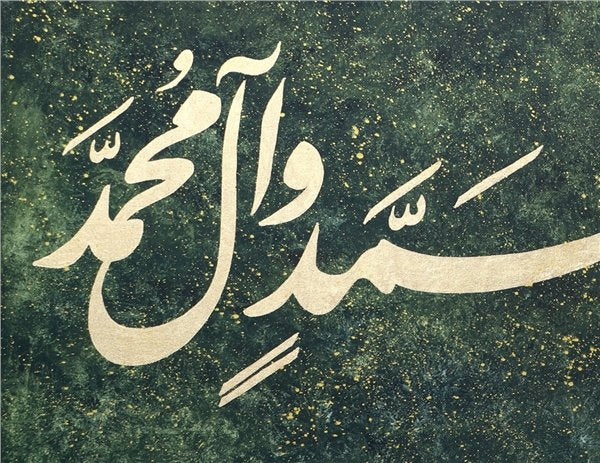 ـَمَّدٍ وآل مُحمَّد